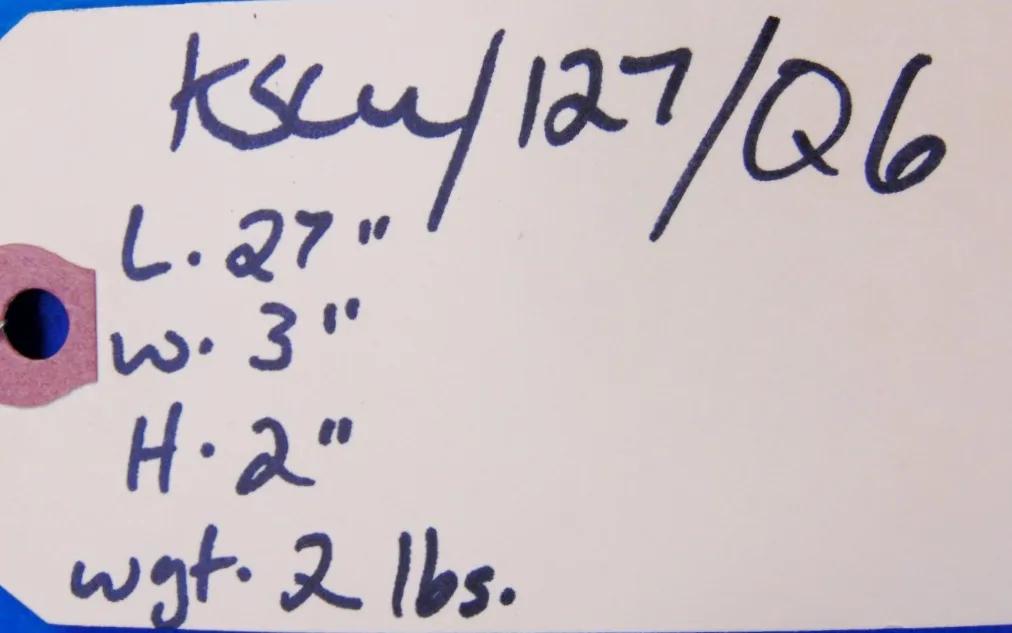 KSCW/127/Q6
L. 27"
W. 3"
H. 2"
wgt. 2 lbs.